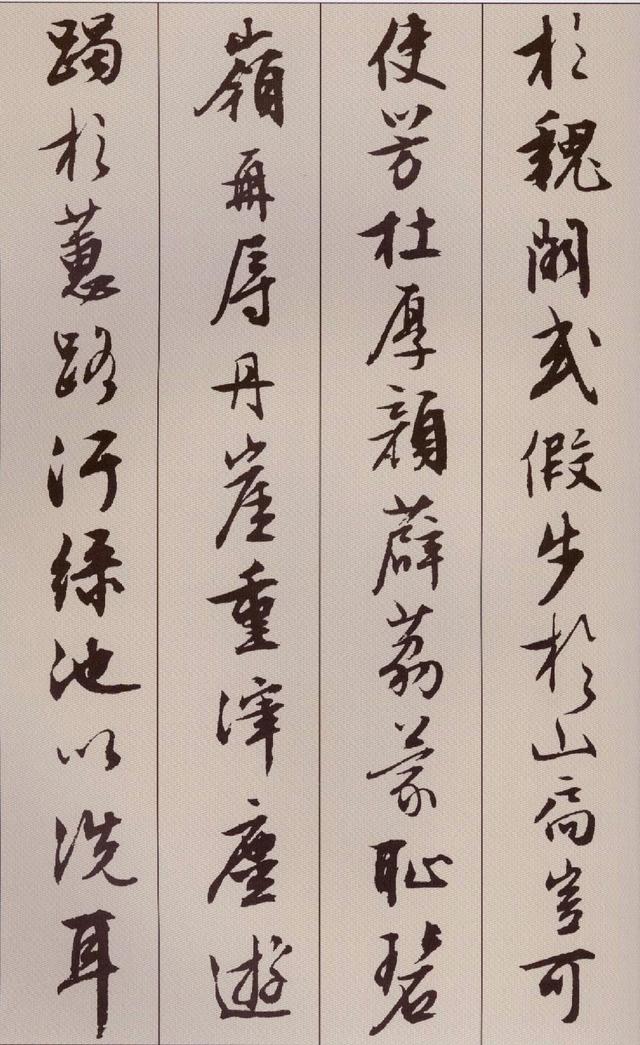 於魏闕或假步於山扃豈可
使芳杜厚顏薜荔蒙恥碧
嶺再辱丹崖重滓塵遊
躅於蕙路汙綠池以洗耳